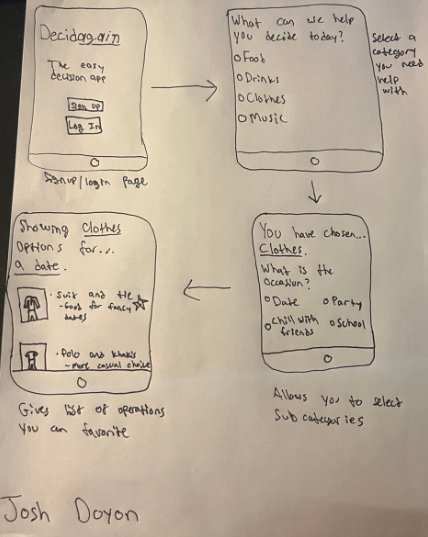 Decidagain
The easy
decision app
Sign up
Log In
Signup/login page
What can we help
you decide today?
Food
Drinks
Clothes
Music
Select a
category
you need
help
with
You have chosen...
Clothes.
What is the
occasion?
Date
Party
Chill with
friends
School
Allows you to select
Sub categories
Showing Clothes
options for...
a date.
· Suit and tie
- Good for fancy
dates
· Polo and khakis
- more casual choice
Gives list of operations
you can favorite
Josh Doyon